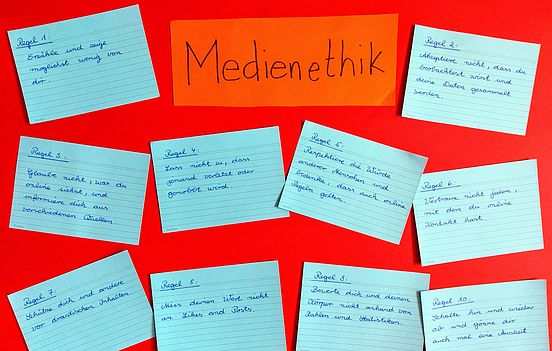 Medienethik
Regel 1:
Erzähle und zeige
möglichst wenig von
dir.
Regel 2:
Akzeptiere nicht, dass du
beobachtest wirst und
deine Daten gesammelt
werden.
Regel 3:
Glaube nicht, was du
online siehst, und
informiere dich aus
verschiedenen Quellen.
Regel 4:
Lass nicht zu, dass
jemand verletzt oder
gemobbt wird.
Regel 5:
Respektiere die Würde
anderer Menschen und
bedenke, dass auch online
Regeln gelten.
Regel 6:
Vertraue nicht jedem,
mit dem du online
Kontakt hast.
Regel 7
Schütze dich und andere
vor drastischen Inhalten.
Regel 8:
Miss deinen Wert nicht
an Likes und Posts.
Regel 9:
Bewerte dich und deinen
Körper nicht anhand von
Zahlen und Statistiken.
Regel 10:
Schalte hin und wieder
ab und gönne dir
auch mal eine Auszeit